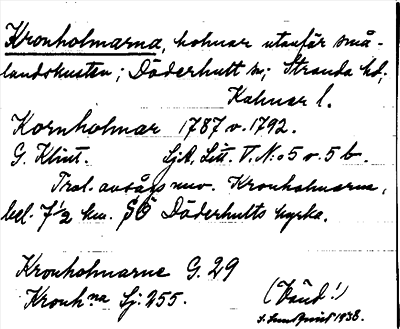 Kronholmarna, holmar utanför små-
landskusten; Döderhult sn; Stranda hd;
Kalmar l.
Kornholmar 1787 o. 1792.
G. Klint. SjA, Litt. V. N:o 5 o. 5 b.
Trol. avsågs nuv. Kronholmarna,
bel. 7 1/2 km. SÖ Döderhults kyrka.
Kronholmarne G. 29
Kronh.na Sj. 255.
(Vänd!)
S. Lundqvist 1938.